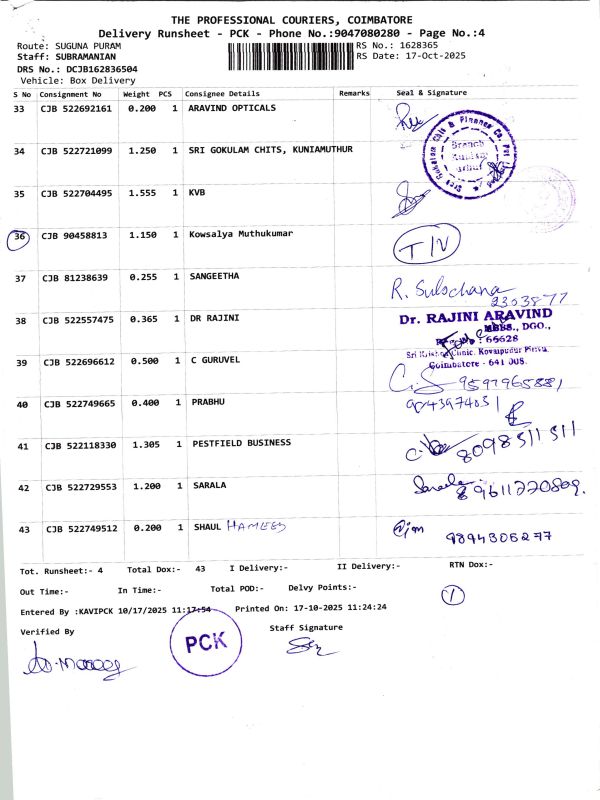 THE PROFESSIONAL COURIERS, COIMBATORE
Delivery Runsheet - PCK - Phone No.:9047080280 - Page No.:4
Route: SUGUNA PURAM RS No.: 1628365
Staff: SUBRAMANIAN RS Date: 17-Oct-2025
DRS No.: DCJB162836504
Vehicle: Box Delivery
S No Consignment No Weight PCS Consignee Details Remarks Seal & Signature
33 CJB 522692161 0.200 1 ARAVIND OPTICALS
34 CJB 522721099 1.250 1 SRI GOKULAM CHITS, KUNIAMUTHUR
Sree Gokulam Chit & Finance Co.
Branch
35 CJB 522704495 1.555 1 KVB
36 CJB 90458813 1.150 1 Kowsalya Muthukumar T/V
37 CJB 81238639 0.255 1 SANGEETHA R. Sulochana
2303877
38 CJB 522557475 0.365 1 DR RAJINI Dr. RAJINI ARAVIND
MBBS., DGO.,
: 66628
Sri Krishna Clinic, Kovaipudur Pirivu,
Coimbatore - 641 008.
39 CJB 522696612 0.500 1 C GURUVEL
40 CJB 522749665 0.400 1 PRABHU
41 CJB 522118330 1.305 1 PESTFIELD BUSINESS 8098511511
42 CJB 522729553 1.200 1 SARALA Sarala
43 CJB 522749512 0.200 1 SHAUL HAMEED 9894306277
Tot. Runsheet:- 4 Total Dox:- 43 I Delivery:- II Delivery:- RTN Dox:-
Out Time:- In Time:- Total POD:- Delvy Points:- 1
Entered By :KAVIPCK 10/17/2025 11:17:54 Printed On: 17-10-2025 11:24:24
Verified By Staff Signature
PCK